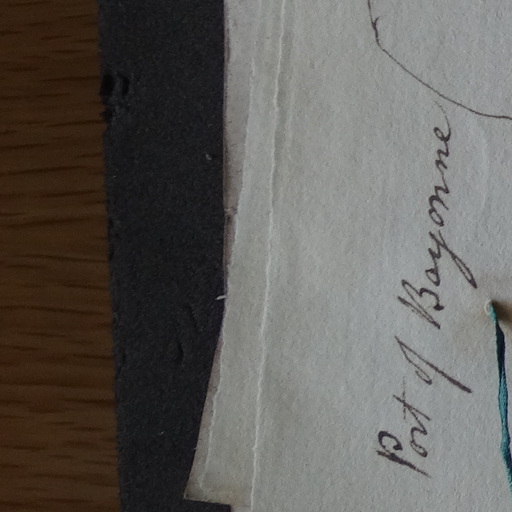 Port of Bayonne